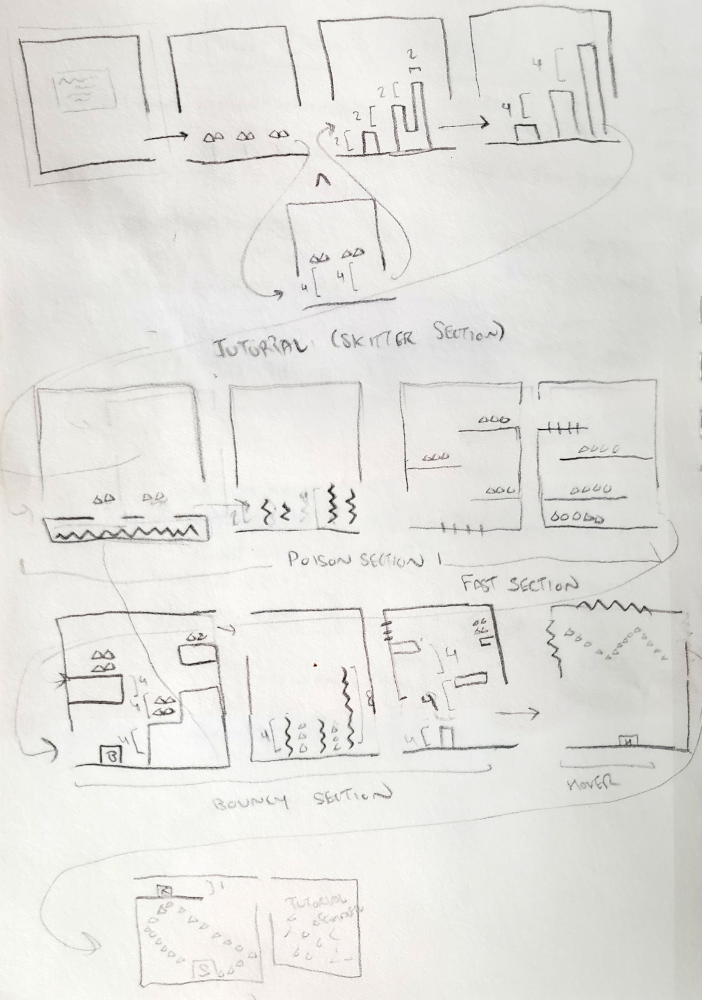 2
2
2
2
4
4
4
4
TUTORIAL (SKITTER SECTION)
2
4
POISON SECTION 1
FAST SECTION
4
4
4
B
4
8
4
4
4
H
BOUNCY SECTION
HOVER
1
S
TUTORIAL